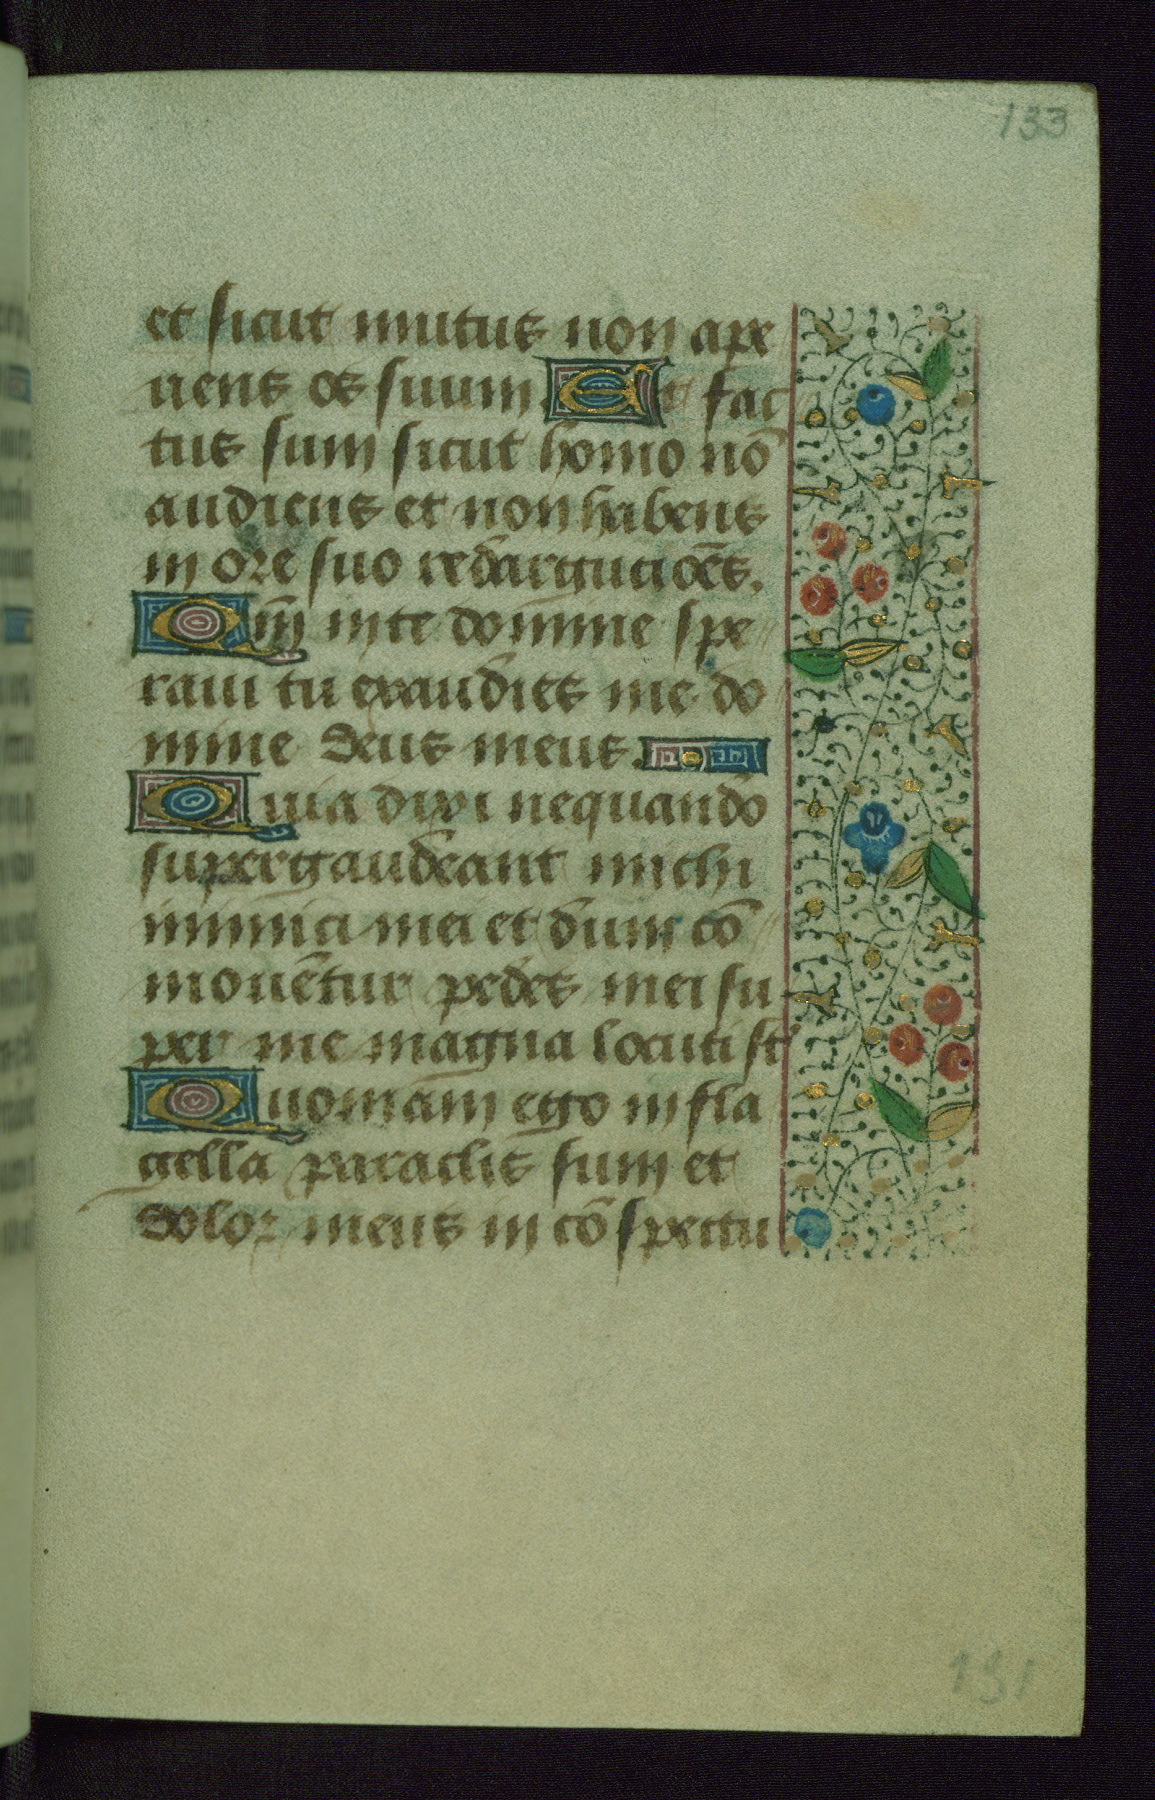 133
et sicut mutus non ape
riens os suum Et fac
tus sum sicut homo nō
audiens et non habens
in ore suo redargucioēs.
Qm̄ in te domine spe
raui tu exaudies me do
mine deus meus.
Quia dixi nequando
supergaudeant michi
inimici mei et dum cō
mouētur pedes mei su
per me magna locuti st̄
Quoniam ego in fla
gella paraclis sum et
dolor meus in cō spectu
131